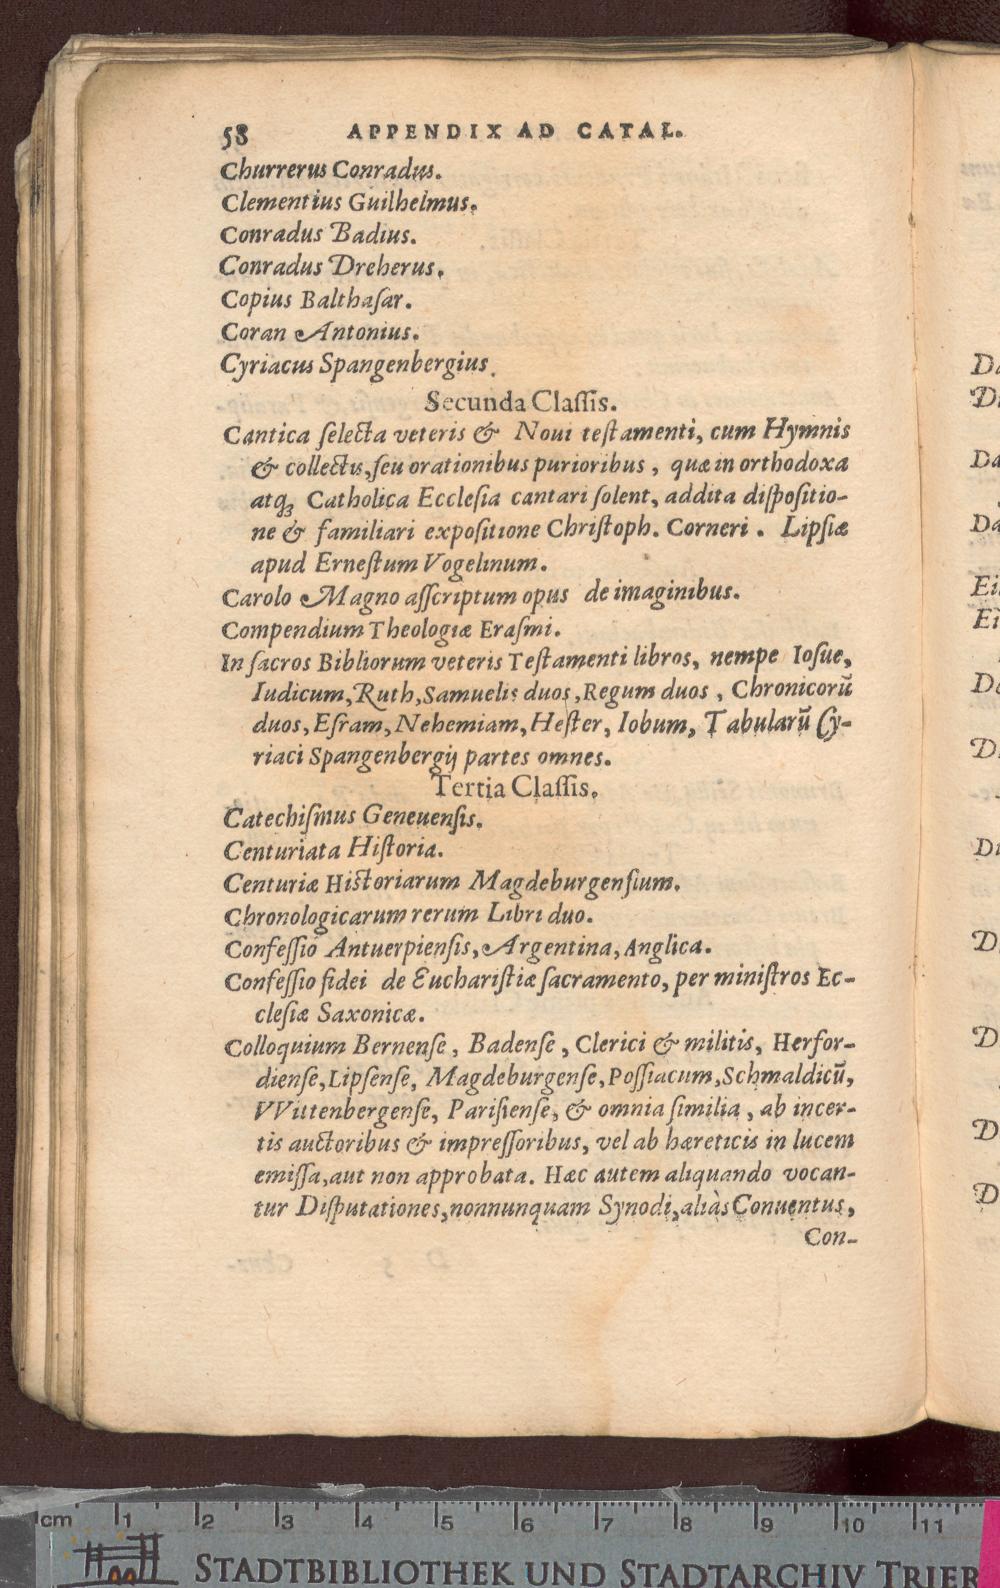 58 APPENDIX AD CATAL.
Churrerus Conradus.
Clementius Guilhelmus.
Conradus Badius.
Conradus Dreherus.
Copius Balthaſar.
Coran Antonius.
Cyriacus Spangenbergius.
Secunda Claſſis.
Cantica ſelecta veteris & Noui teſtamenti, cum Hymnis
& collectis, ſeu orationibus purioribus, quæ in orthodoxa
atqꝫ Catholica Eccleſia cantari ſolent, addita diſpoſitio-
ne & familiari expoſitione Chriſtoph. Corneri. Lipſiæ
apud Erneſtum Vogelinum.
Carolo Magno aſſcriptum opus de imaginibus.
Compendium Theologiæ Eraſmi.
In ſacros Bibliorum veteris Teſtamenti libros, nempe Ioſue,
Iudicum, Ruth, Samuelis duos, Regum duos, Chronicorū
duos, Eſram, Nehemiam, Heſter, Iobum, Tabularū Cy-
riaci Spangenbergij partes omnes.
Tertia Claſſis.
Catechiſmus Geneuenſis.
Centuriata Hiſtoria.
Centuriæ Hiſtoriarum Magdeburgenſium.
Chronologicarum rerum Libri duo.
Confeſſio Antuerpienſis, Argentina, Anglica.
Confeſſio fidei de Euchariſtiæ ſacramento, per miniſtros Ec-
cleſiæ Saxonicæ.
Colloquium Bernenſe, Badenſe, Clerici & militis, Herfor-
dienſe, Lipſenſe, Magdeburgenſe, Poſſiacum, Schmaldicū,
VVittenbergenſe, Pariſienſe, & omnia ſimilia, ab incer-
tis auctoribus & impreſſoribus, vel ab hæreticis in lucem
emiſſa, aut non approbata. Hæc autem aliquando vocan-
tur Diſputationes, nonnunquam Synodi, aliàs Conuentus,
Con-
cm 1 2 3 4 5 6 7 8 9 10 11
STADTBIBLIOTHEK UND STADTARCHIV TRIER